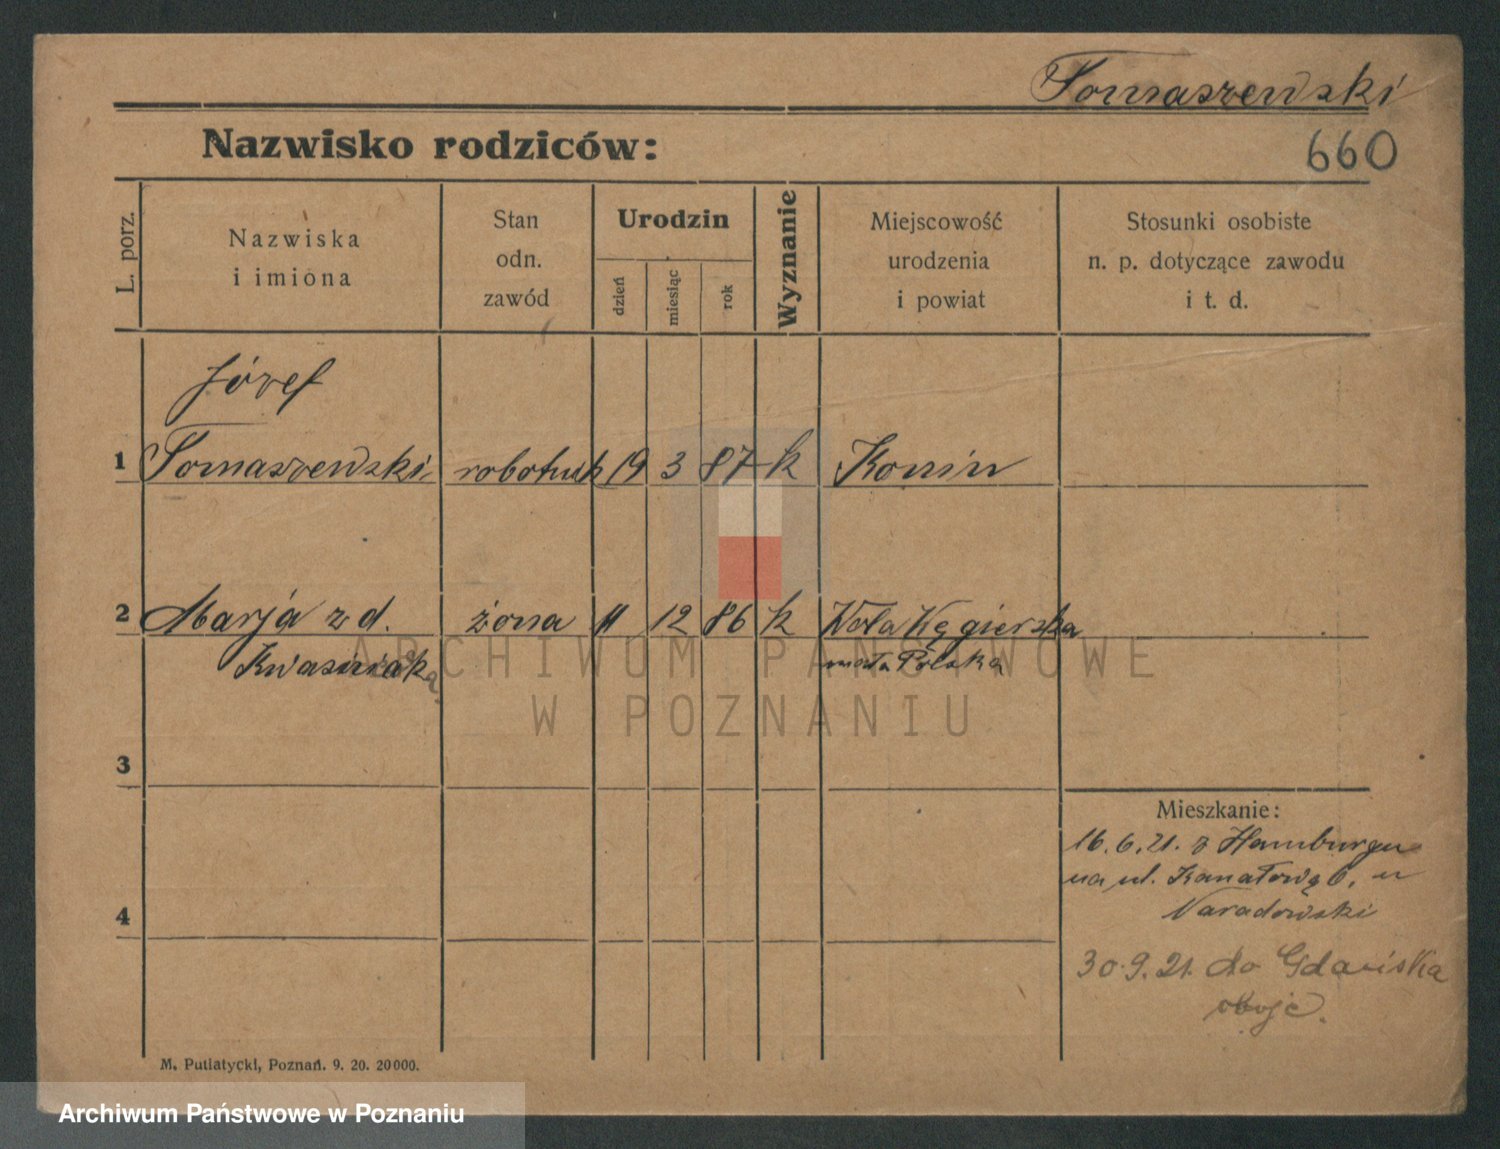 Tomaszewski
Nazwisko rodziców:
660
L. porz.
Nazwiska
i imiona
Stan
odn.
zawód
Urodzin
dzień
miesiąc
rok
Wyznanie
Miejscowość
urodzenia
i powiat
Stosunki osobiste
n. p. dotyczące zawodu
i t. d.
Józef
1 Tomaszewski robotnik 19 3 87 k Konin
2 Marja z d. żona 11 12 86 k Wola
mała Polska
ARCHIWUM PAŃSTWOWE
W POZNANIU
3
Mieszkanie:
16.6.21. z Hamburgu
na ul. Kanałową 6, u
Naradowski
4
30.9.21. do Gdańska
oboje.
M. Putiatycki, Poznań. 9. 20. 20000.
Archiwum Państwowe w Poznaniu